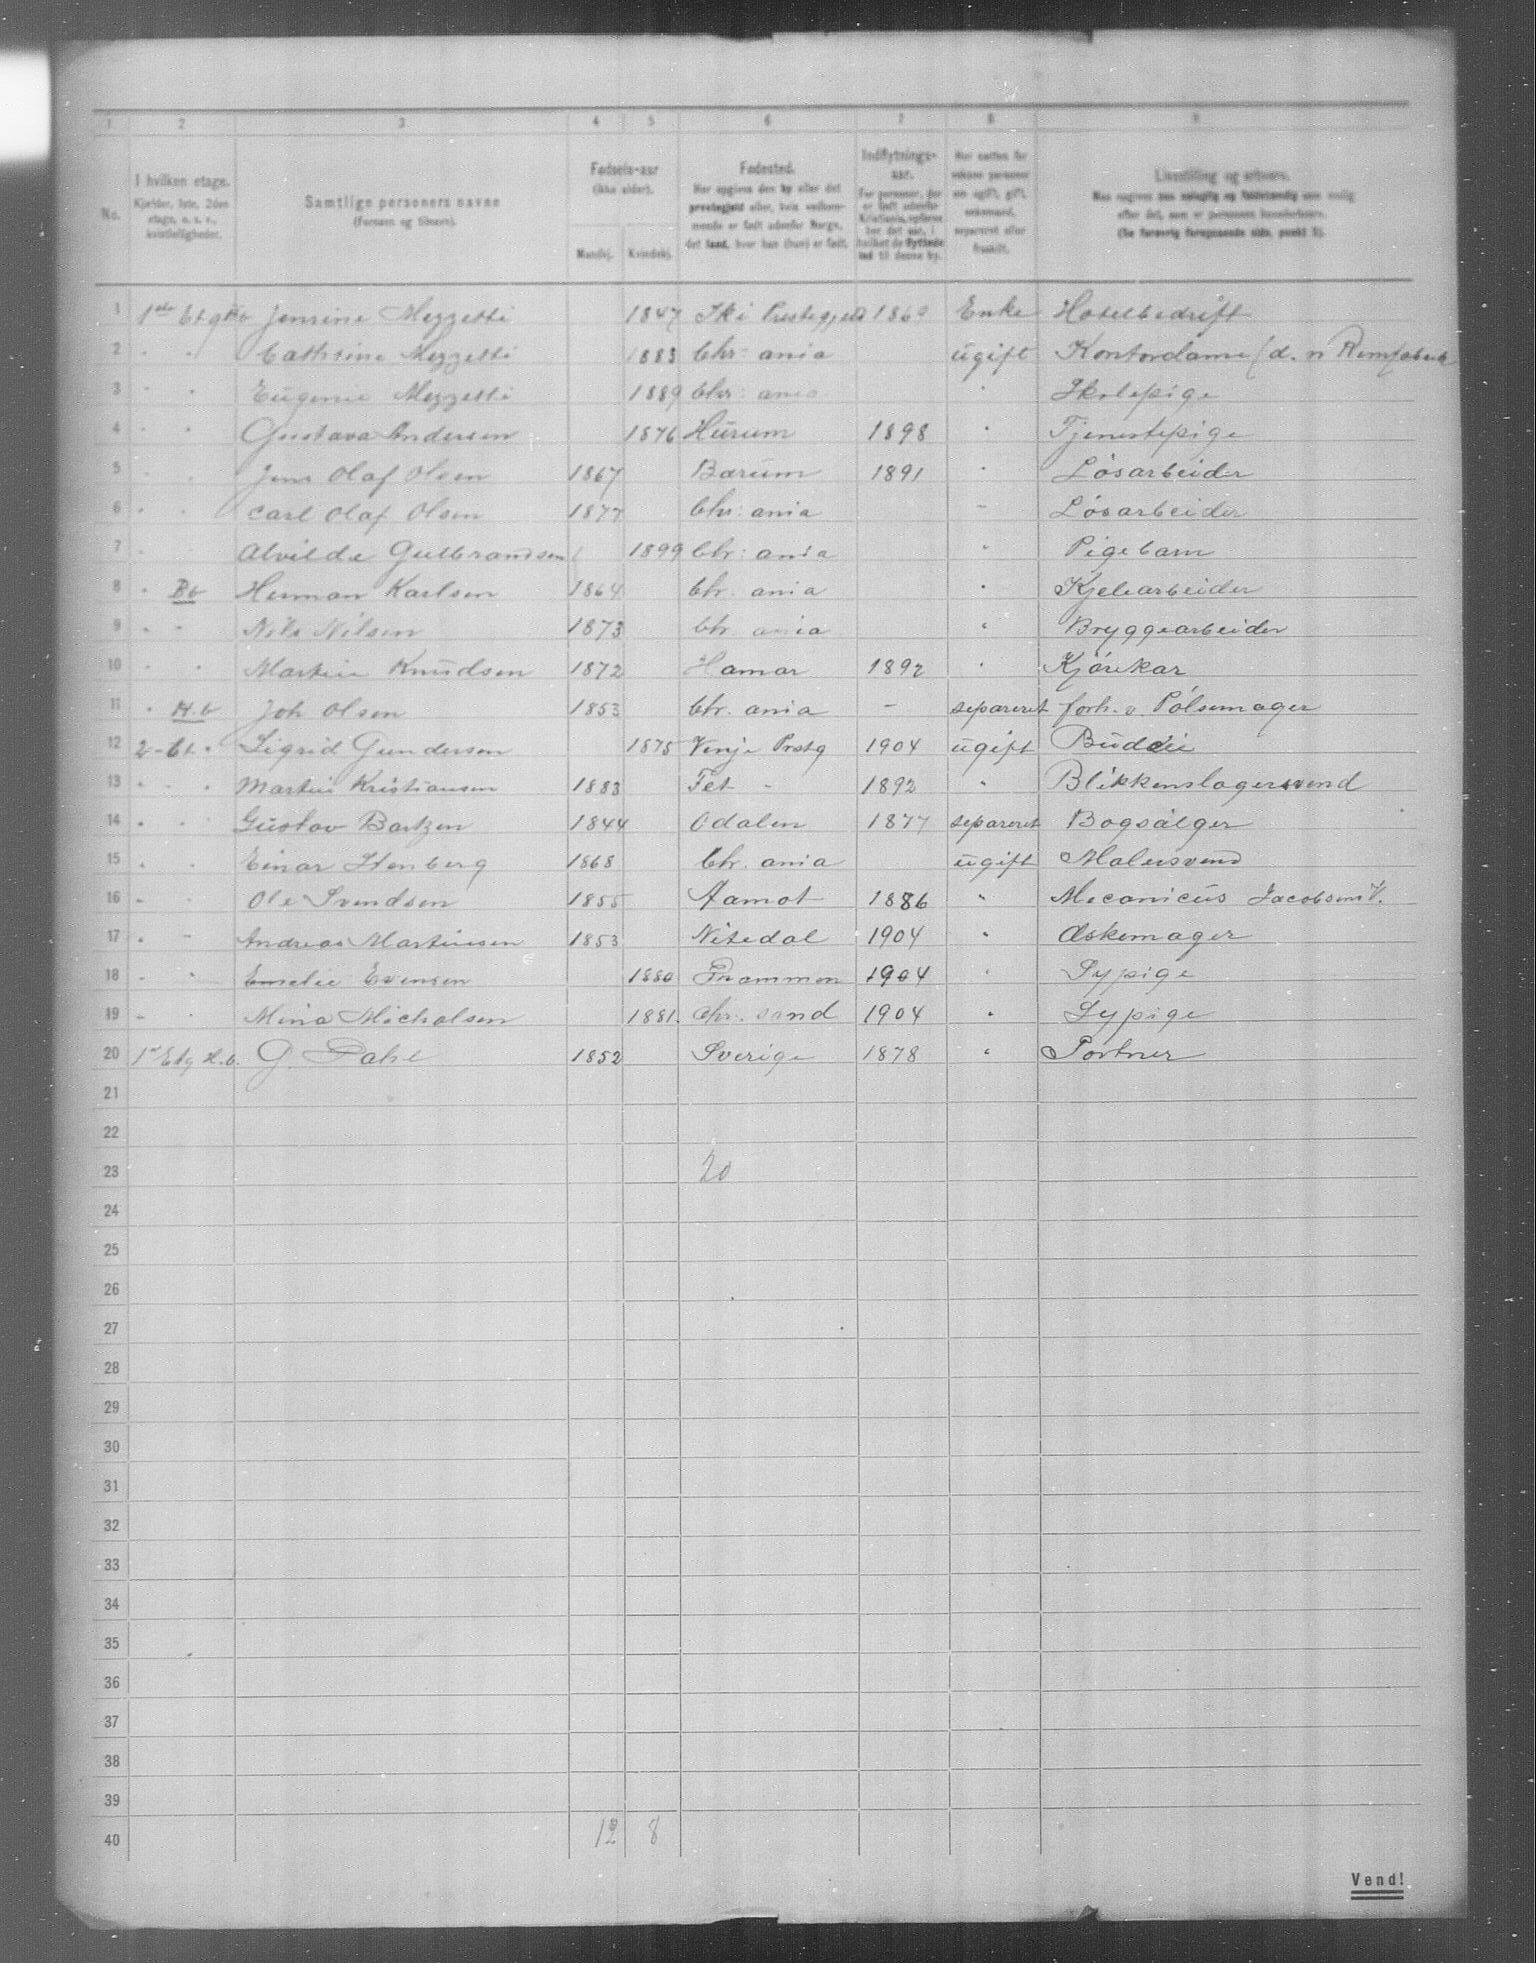 1 2 3 4 5 6 7 8 9
No. I hvilken etage. Kjelder, 1ste, 2den etage, o. s. v., kvistleiligheder. Samtlige personers navne (Fornavn og tilnavn). Fødsels-aar (ikke alder). Mandkj. Kvindekj. Fødested. Her opgives den by eller det prestegjeld eller, hvis vedkommende er født udenfor Norge, det land, hvor han (hun) er født. Indflytnings-aar. For personer, der er født udenfor Kristiania, opføres her det aar, i hvilket de flyttede ind til denne by. Her sættes for voksne personer om ugift, gift, enkemand, separeret eller fraskilt. Livsstilling og erhverv. Man opgives saa nøiagtig og fuldstændig som mulig efter det, som er personens hovederhverv. (Se forøvrig foregaaende side, punkt 5).
1 1ste Etg Jensine Mezzetti 1847 Ski Prestegjeld 1869 Enke Hotelbedrift
2 " " Cathrine Mezzetti 1883 Chr: ania ugift Kontordame (d. n Remfabrik
3 " " Eugenie Mezzetti 1889 Chr: ania " Skolepige
4 " " Gustava Andersen 1876 Hurum 1898 " Tjenestepige
5 " " Jens Olaf Olsen 1867 Bærum 1891 " Løsarbeider
6 " " Carl Olaf Olsen 1877 Chr: ania " Løsarbeider
7 " Alvilde Gulbrandsen 1899 Chr: ania " Pigebarn
8 " Bb Herman Karlsen 1864 Chr. ania " Kjelearbeider
9 " " Nils Nilsen 1873 Chr ania " Bryggearbeider
10 " " Martin Knudsen 1872 Hamar 1892 " Kjørekar
11 " H.b Joh Olsen 1853 Chr. ania - separeret forh. v. Pølsemager
12 2-Et. " Sigrid Gundersen 1875 Vinje Prstg 1904 ugift Budeie
13 " " " Martin Kristiansen 1883 Fet - 1892 " Blikkenslagersvend
14 " " " Gustav Bartzen 1844 Odalen 1877 separeret Bogsælger
15 " " Einar Stenberg 1868 Chr. ania ugift Malersvend
16 " " Ole Svendsen 1855 Aamot 1886 " Mecanicus Jacobsens V.
17 " " Andreas Martinsen 1853 Nitedal 1904 " Æskemager
18 " " Emelie Evensen 1880 Drammen 1904 " Sypige
19 " " Mina Micholsen 1881. Chr. sand 1904 " Sypige
20 1st Etg H.b. G. 1852 Sverige 1878 " Portner
21
22
23 20
24
25
26
27
28
29
30
31
32
33
34
35
36
37
38
39
40 12 8
Vend!